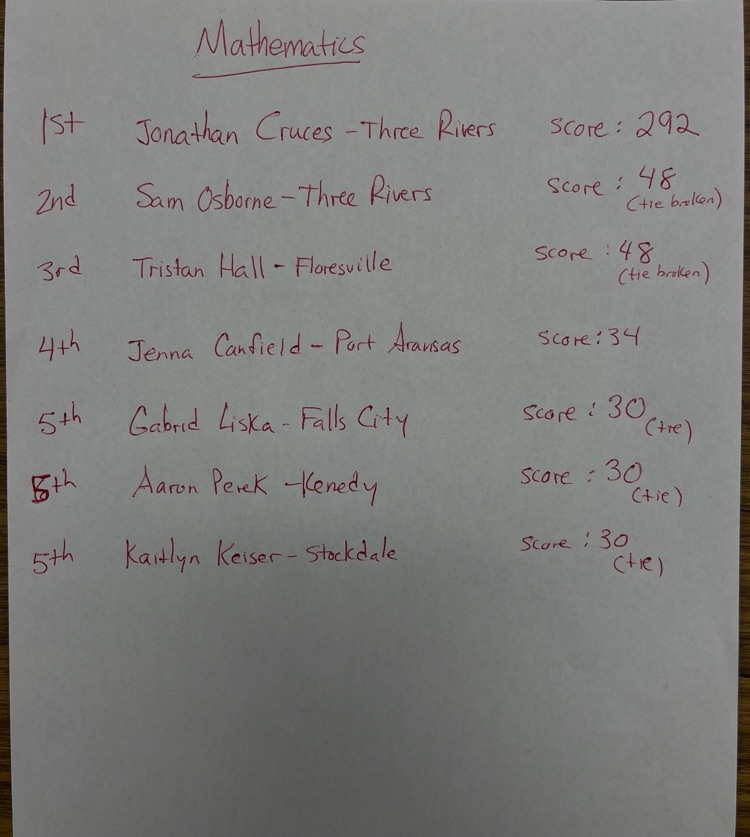 Mathematics
1st Jonathan Cruces - Three Rivers Score: 292
2nd Sam Osborne - Three Rivers Score: 48
(tie broken)
3rd Tristan Hall - Floresville Score: 48
(tie broken)
4th Jenna Canfield - Port Aransas Score: 34
5th Gabriel Liska - Falls City Score: 30
(tie)
5th Aaron Perek - Kenedy Score: 30
(tie)
5th Kaitlyn Keiser - Stockdale Score: 30
(tie)